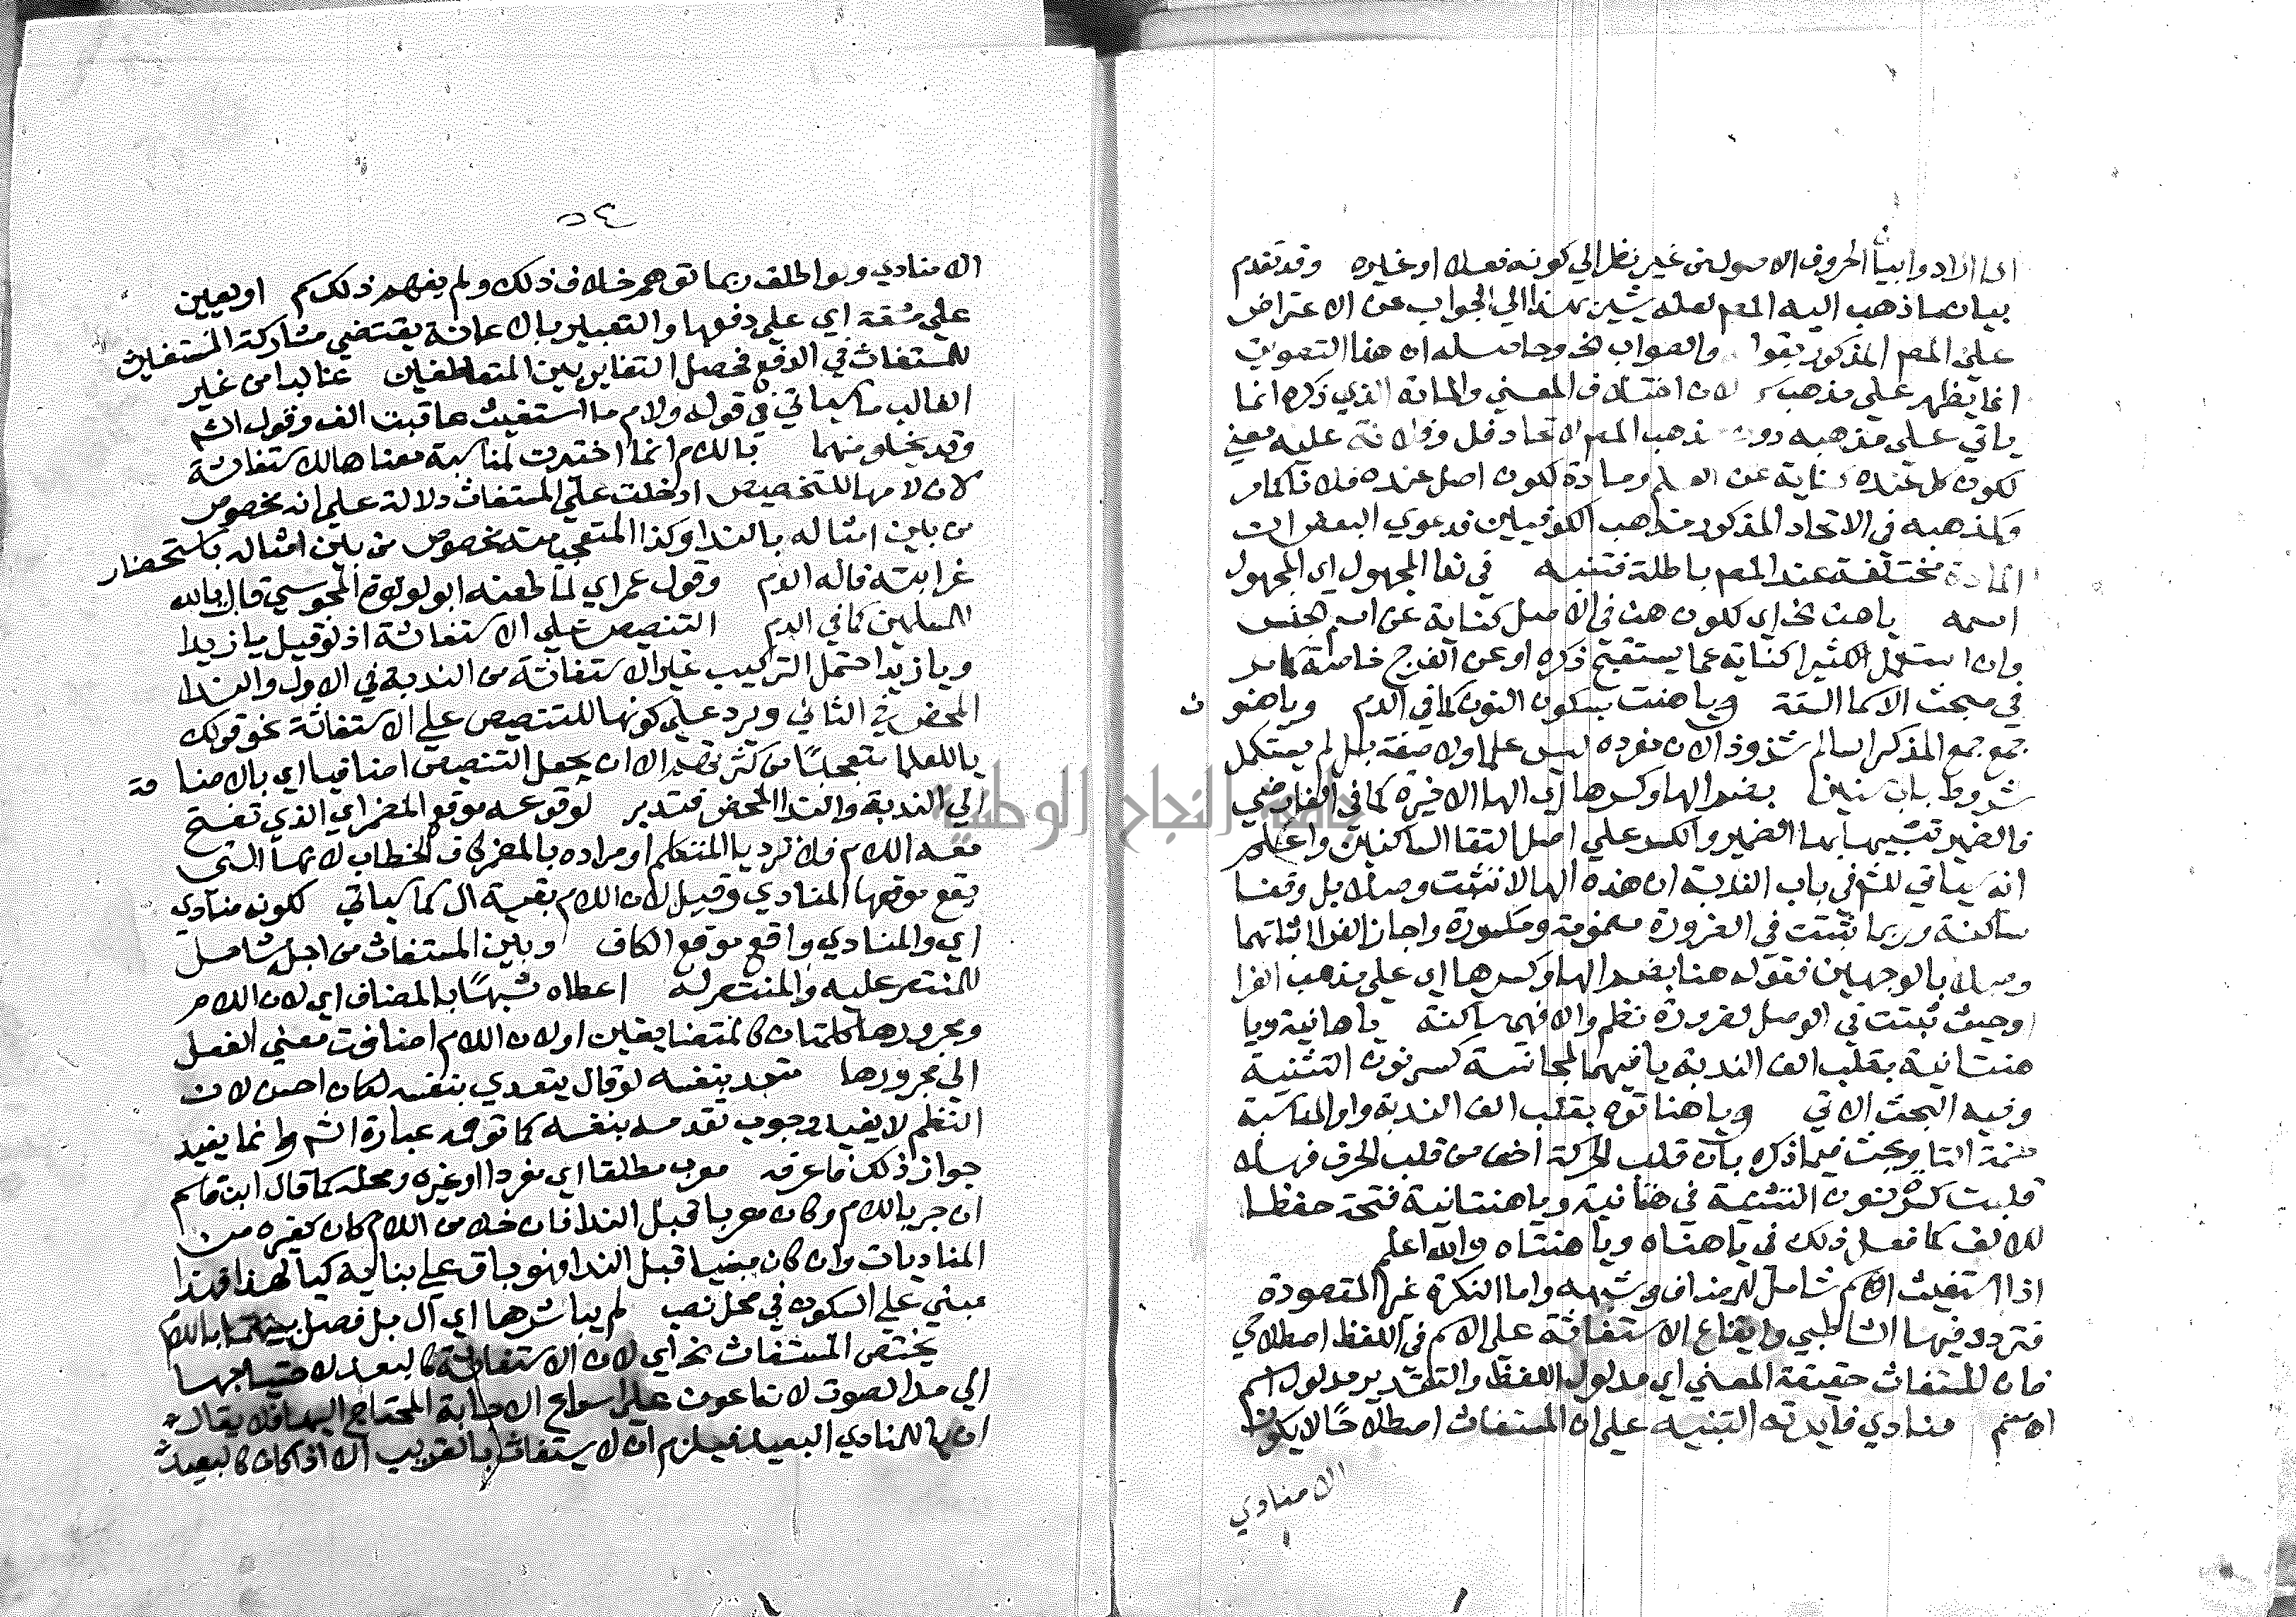 انما ارادوا بيان الحروف الاصول من غير نظر الي كونه فعلا او غيره وقد تقدم
بيان ما ذهب اليه المصم لعله يشير بهذا الي الجواب عن الاعتراض
علي المصم المذكور بقوله والصواب الخ وحاصله ان هذا التصويب
انما يظهر علي مذهب لان اختلاف المعني والمادة الذي ذكره انما
ياتي علي مذهبه دون مذهب المصم الاتحاد فل وفلانة عليه معني
لكون كل عنده كناية عن العلم ومادة لكون اصل عنده فلانا كما مر
ولمذهبه في الاتحاد المذكور مذاهب الكوفيين فدعوي البعض ان
المادة مختلفة عند المصم باطلة فتنبه في ندا المجهول اي المجهول
اسمه يا هن نحو اي لكون هن في الاصل كناية عن اسم الجنس
وان استعمل كثيرا كناية عما يستقبح ذكره او عن الفرج خاصة كما مر
في مبحث الاسما الستة ويا هنت بسكون النون كما في الدم ويا هنون
جمع جمع المذكر السالم شذوذا لان مفرده ليس علما ولا صفة بل لم يستكمل
شروط باب سنين بضم الها وكسرها اي الها الاخيرة كما في الفارضي
فالضم تشبيها بها الضمير والكسر علي اصل التقا الساكنين واعلم
انه سياتي للشم في باب الندبة ان هذه الها لا تثبت وصلا بل وقفا
ساكنة وربما ثبتت في الضرورة مضمومة ومكسورة واجاز الفرا اثباتها
وصلا بالوجهين فقوله هنا بضم الها وكسرها اي علي مذهب الفرا
او حيث ثبتت في الوصل لضرورة نظم والا فهي ساكنة يا هانية ويا
هنتانية بقلب الف الندبة يا فيهما لمجانسة كسر نون التثنية
وفيه البحث الاتي ويا هناتوه بقلب الف الندبة واوا لمناسبة
ضمة التا وبحث فيما ذكره بان قلب الحركة اخف من قلب الحرف فهلا
قلبت كسرة نون التثنية في هنانية ويا هنتانية فتحة حفظا
للالف كما فعل ذلك في يا هناه ويا هنتاه والله اعلم
اذا استغيث اسم شامل للمضاف وشبهه واما النكرة غير المقصودة
فتردد فيها الشاطبي وايقاع الاستغاثة علي الاسم في اللفظ اصطلاحي
فان للمستغاث حقيقة المعني اي مدلول اللفظ والتقدير مدلول اسم
الاسم منادي فايدته التنبيه علي ان المستغاث اصطلاحا لا يكون
الا منادي
٥٤
الا منادي ولو اطلق ربما توهم خلاف ذلك ولم يفهم ذلك كم او يعين
علي مشقة اي علي دفعها والتعبير بالاعانة يقتضي مشاركة المستغيث
للمستغاث في الدفع فحصل التغاير بين المتعاطفين غالبا من غير
الغالب ما سياتي في قوله ولام ما استغيث عاقبت الف وقول الشم
وقد يخلو منهما باللام انما اختيرت لمناسبة معناها للاستغاثة
لان لامها للتخصيص ادخلت علي المستغاث دلالة علي انه مخصوص
من بين امثاله بالندا وكذا المتعجب منه مخصوص من بين امثاله باستحضار
غرابته قاله الدم وقول عمر اي لما طعنه ابو لولوة المجوسي قال يا لله
للمسلمين كما في الدم التنصيص علي الاستغاثة اذ لو قيل يا زيدا
ويا زيد احتمل التركيب غير الاستغاثة من الندبة في الاول والندا
المحض في الثاني ويرد علي كونها للتنصيص علي الاستغاثة نحو قولك
يا للعلما متعجبا من كثرتهم الا ان يجعل التنصيص اضافيا اي بالاضافة
الي الندبة والندا المحض فتدبر لوقوعه موقع المضمر اي الذي تفتح
معه اللام فلا ترد يا المتكلم او مراده بالمضمر كاف الخطاب لانها التي
يقع موقعها المنادي وقيل لان اللام بقية ال كما سياتي لكونه منادي
اي والمنادي واقع موقع الكاف وبين المستغاث من اجله شامل
للمنتصر عليه والمنتصر له اعطاه شبها بالمضاف اي لان اللام
ومجرورها كلمتان كالمتضايفين او لان اللام اضافت معني الفعل
الي مجرورها متعد بنفسه لو قال يتعدي بنفسه لكان احسن لان
النظم لا يفيد وجوب تقدمه بنفسه كما توهمه عبارة الشم وانما يفيد
جواز ذلك فاعرفه معرب مطلقا اي مفردا او غيره ومحله كما قال ابن قاسم
ان جر باللام وكان معربا قبل الندا فان خلا من اللام كان كغيره من
المناديات وان كان مبنيا قبل الندا فهو باق علي بنايه كيا لهذا فهذا
مبني علي السكون في محل نصب لم يباشرها اي ال بل فصل بينهما باللام
يختص المستغاث نحو اي لان الاستغاثة كالبعد لاحتياجها
الي مد الصوت لانه اعون علي اسراع الاجابة المحتاج اليها فلا يقال
ان يا للمنادي البعيد فيلزم ان لا يستغاث بالقريب الا اذا كان كالبعيد
جامعة النجاح الوطنية